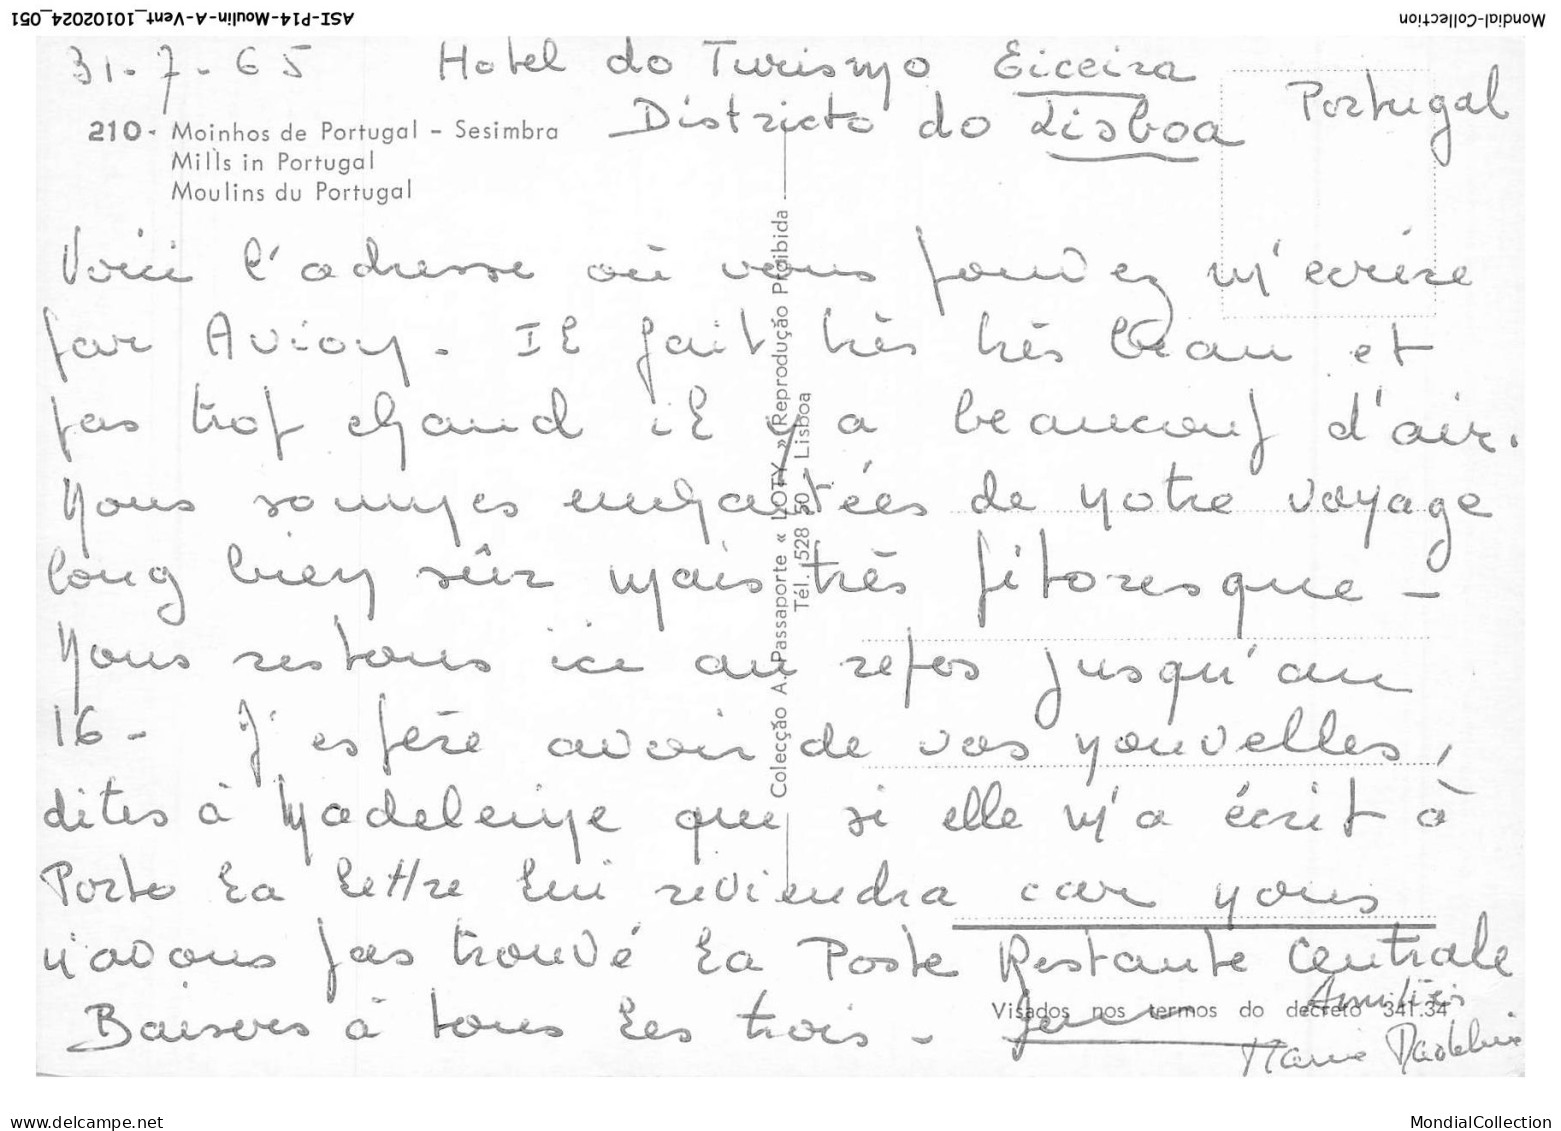 Mondial-Collection
ASI-P14-Moulin-A-Vent_10102024_051
31-7-65 Hotel do Turismo Eiceira Portugal
Districto do Lisboa
210 - Moinhos de Portugal - Sesimbra
Mills in Portugal
Moulins du Portugal
Voici l'adresse où vous pouvez m'ecrire
par Avion. Il fait très très beau et
pas trop chaud il y a beaucoup d'air.
Nous sommes enchantées de notre voyage
long bien sûr mais très pitoresque -
Nous restons ici au repos jusqu'au
16 - J'espère avoir de vos nouvelles,
dites à Madeleine que si elle m'a écrit à
Porto la lettre lui reviendra car nous
n'avons pas trouvé la Poste Restante Centrale
Baisers à tous les trois -
Amitiés
Marie
Colecção A. Passaporte « LOTY » Reprodução Proibida
Tél. 528 50 Lisboa
Visados nos termos do decreto 341.34
www.delcampe.net
MondialCollection